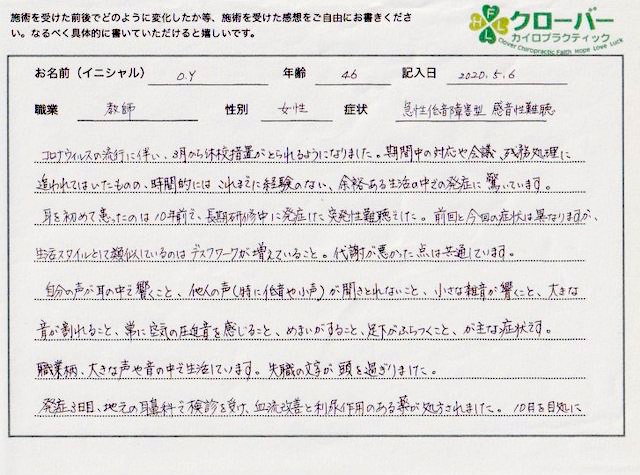 施術を受けた前後でどのように変化したか等、施術を受けた感想をご自由にお書きくださ
い。なるべく具体的に書いていただけると嬉しいです。
クローバー
カイロプラクティック
Clover Chiropractic Faith Hope Love Luck
お名前(イニシャル) O.Y 年齢 46 記入日 2020.5.6
職業 教師 性別 女性 症状 急性低音障害型 感音性難聴
コロナウイルスの流行に伴い、3月から休校措置がとられるようになりました。期間中の対応や会議、残務処理に
追われてはいたものの、時間的にはこれまでに経験のない、余裕ある生活の中での発症に驚いています。
耳を初めて患ったのは10年前で、長期研修中に発症した突発性難聴でした。前回と今回の症状は異なりますが、
生活スタイルとして類似しているのはデスクワークが増えていること。代謝が悪かった点は共通しています。
自分の声が耳の中で響くこと、他人の声(特に低音や小声)が聞きとれないこと、小さな雑音が響くこと、大きな
音が割れること、常に空気の圧迫音を感じること、めまいがすること、足下がふらつくこと、が主な症状です。
職業柄、大きな声や音の中で生活しています。失職の文字が頭を過ぎりました。
発症3日目、地元の耳鼻科で検診を受け、血流改善と利尿作用のある薬が処方されました。10日を目処に